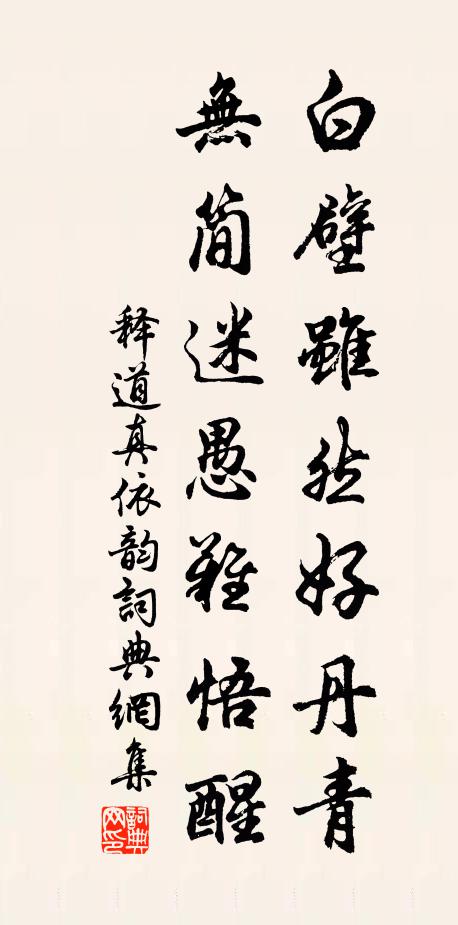 白壁雖然好丹青
無简迷愚難悟醒
释道真依韵詞典網集
詞典网印